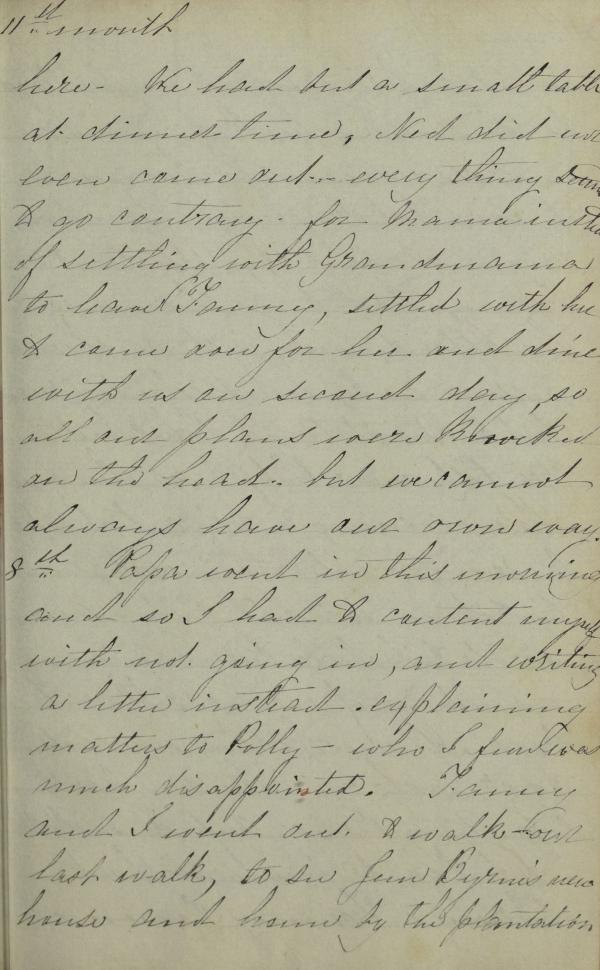 11th month
here - We had but a small table
at dinner time, Ned did not
even come out - every thing seems
to go contrary - for Mama instead
of settling with Grandmama
to leave Fanny, settled with her
to come out for her and dine
with us on second day, so
all our plans were knocked
on the head - but we cannot
always have our own way.
8th Papa went in this morning
and so I had to content myself
with not going in, and writing
a letter instead. explaining
matters to Polly - who I fear was
much disappointed. Fanny
and I went out to walk - our
last walk, to see Byrnes new
house and home by the plantation